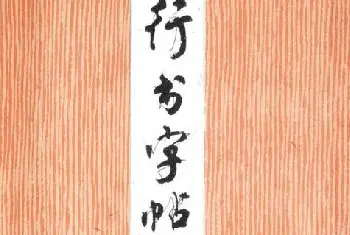 行书字帖